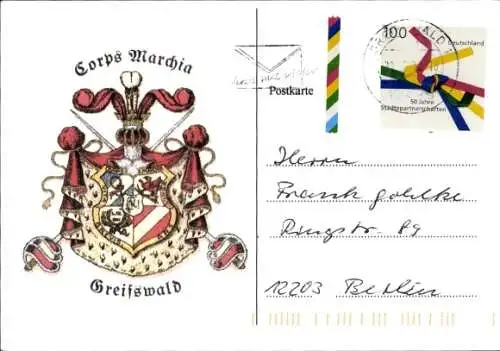 Corps Marchia
Greifswald
Postkarte
100
Deutschland
50 Jahre
Städtepartnerschaften
Herrn
Frank
Ringstr. 89
12203 Berlin